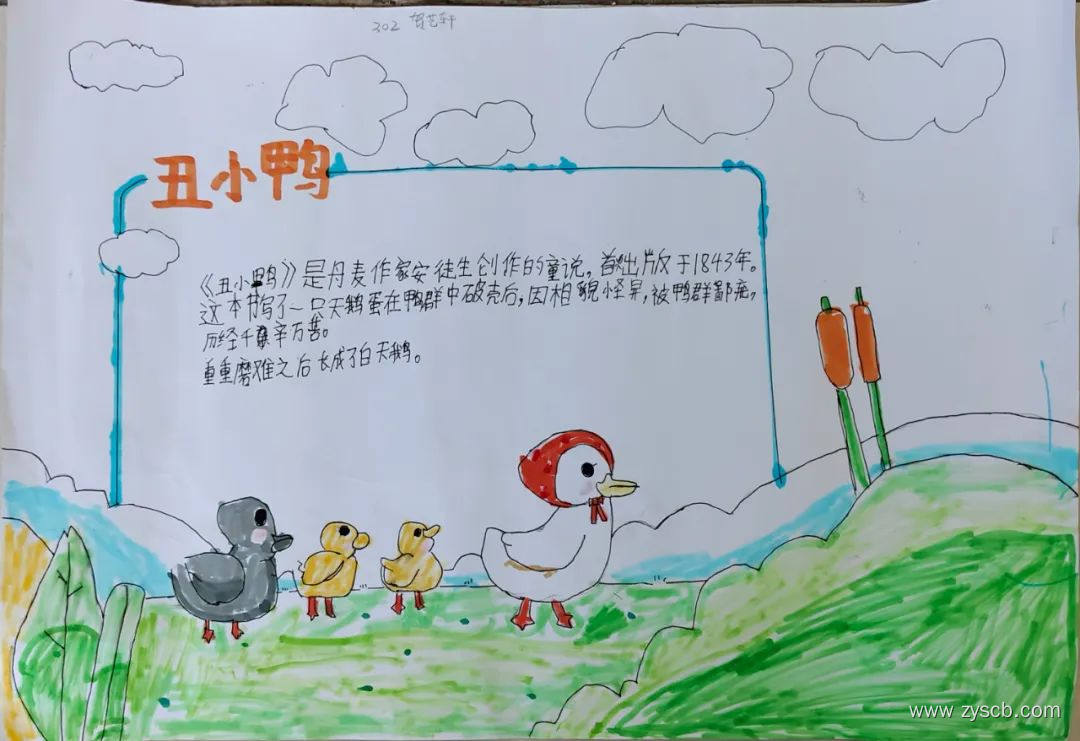 302 贺艺轩
丑小鸭
《丑小鸭》是丹麦作家安徒生创作的童说。首出版于1843年。
这本书写了一只天鹅蛋在鸭群中破壳后,因相貌怪异,被鸭群鄙弃,
历经千辛万苦。
重重磨难之后长成了白天鹅。
www.zyscb.com